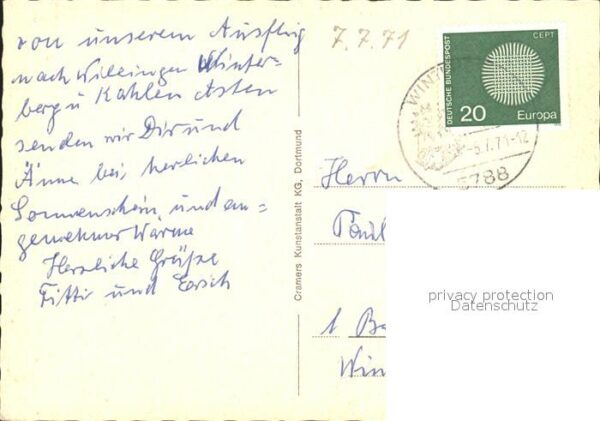 von unserem Ausflug
nach Willingen Winter-
berg u Kahlen Asten
senden wir Dir und
Änne bei herrlichen
Sonnenschein und an=
genehmer Wärme
Herzliche Grüße
und Erich
Cramers Kunstanstalt KG, Dortmund
7.7.71
DEUTSCHE BUNDESPOST
CEPT
20
Europa
WINT
-5.7.71-12
5788
Herrn
1 Be
Win
privacy protection
Datenschutz